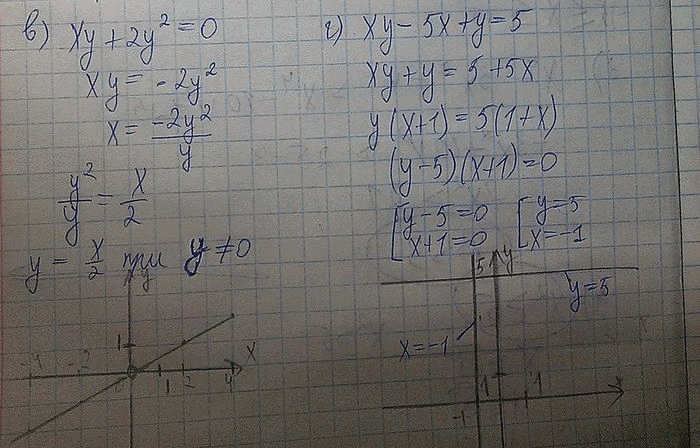 в) xy + 2y² = 0
xy = -2y²
x = -2y²/y
y²/y = x/2
y = x/2 при y ≠ 0
y
1
x
-4 -2 0 1 2 4
г) xy - 5x + y = 5
xy + y = 5 + 5x
y(x+1) = 5(1+x)
(y-5)(x+1) = 0
[y-5=0 [y=5
[x+1=0 [x=-1
5 y
y=5
x=-1
1
-1 1 x